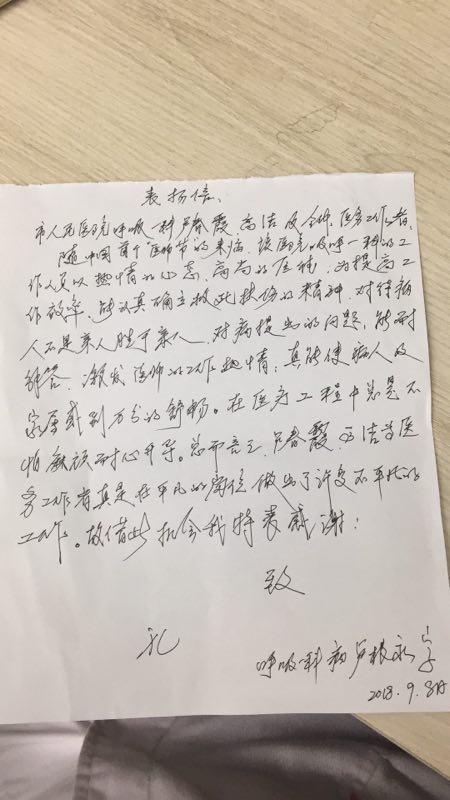 表扬信、
市人民医院呼吸一科卢春霞、高洁及全体医务工作者:
随中国首个"医师节的来临,该医院呼吸一科的工
作人员以热情的心态,高尚的医德,为提高工
作效率,能认真确立救死扶伤的精神,对待病
人不是亲人胜于亲人,对病提出的问题,能耐
解答,激发医师的工作热情,真能使病人及
家属感到万分的舒畅。在医疗工程中总是不
怕麻烦耐心开导。总而言之,卢春霞、高洁等医
务工作者真是在平凡的岗位做出了许多不平凡的
工作。故借此机会我特表感谢:
致
礼
呼吸科病 卢根永 字
2018.9.8日